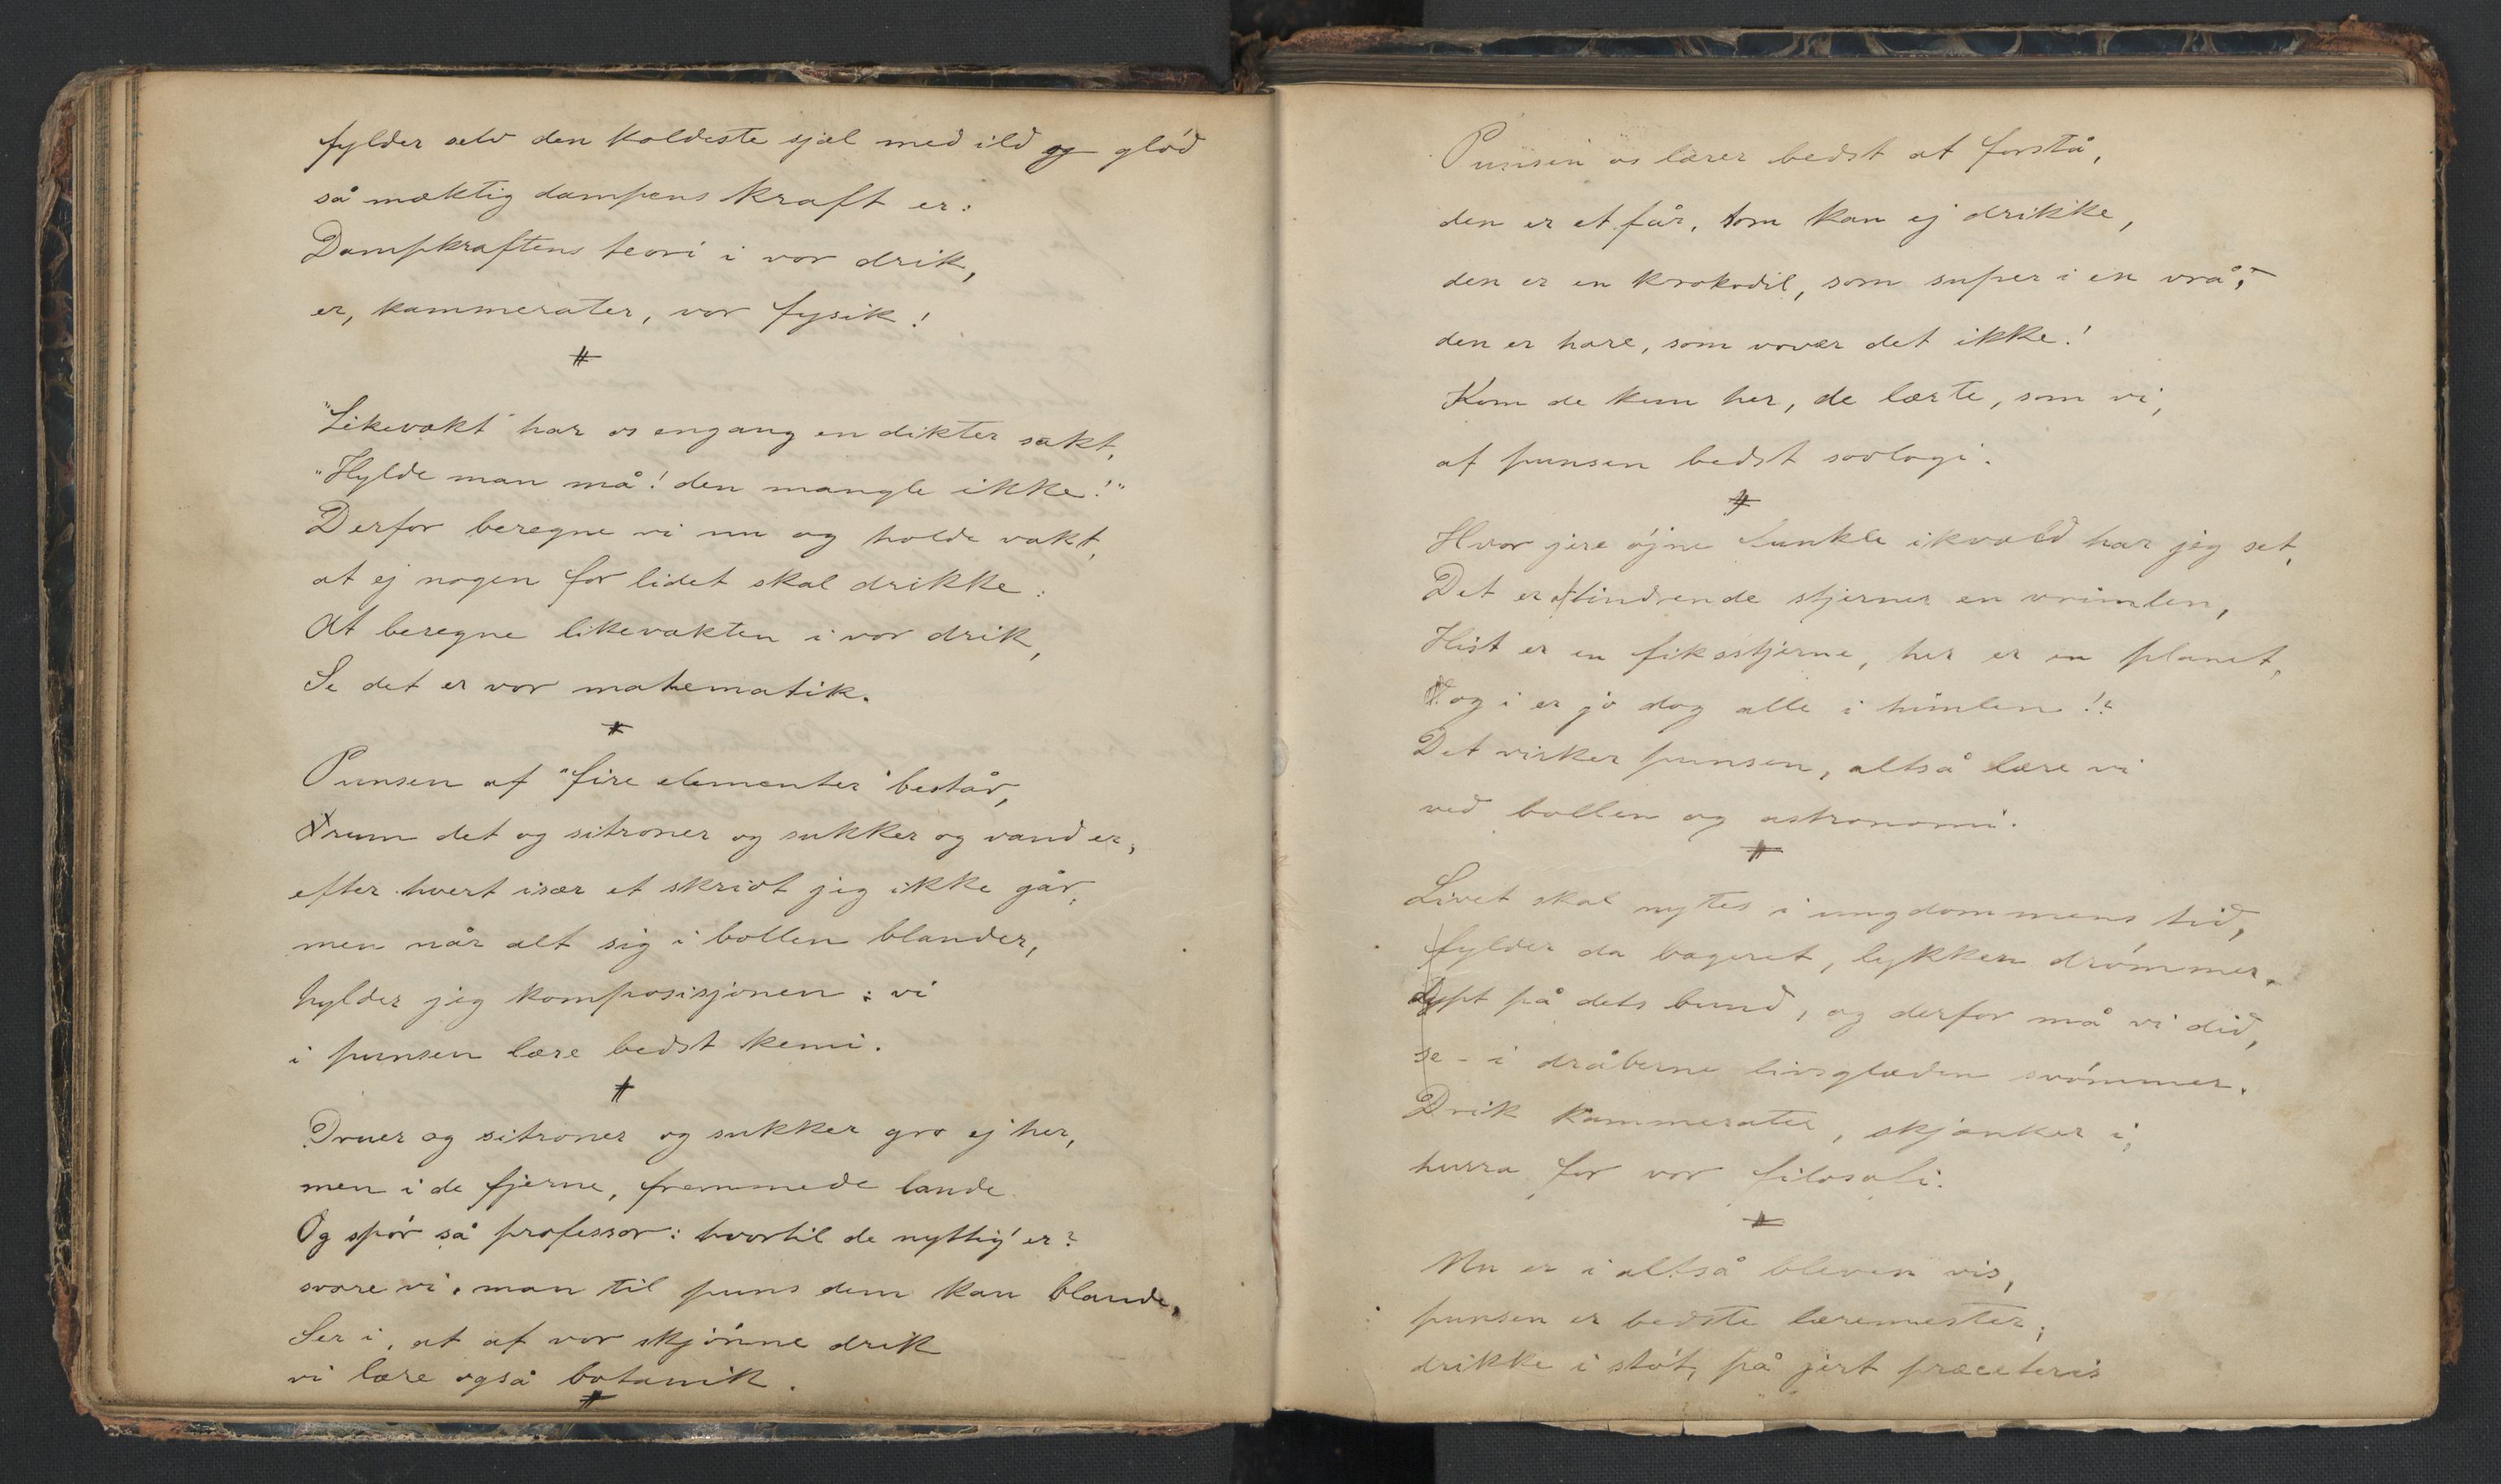 fylder selv den koldeste sjæl med ild og glód
så mæktig dampens kraft er:
Dampkraftens teori i vor drik,
er, kammerater, vor fysik!
#
"Likevækt" har os engang en dikter sakt,
"Hylde man må! den mangle ikke!"
Derfor beregne vi nu og holde vakt,
at ej nogen for lidet skal drikke:
At beregne likevækten i vor drik,
Se det er vor matematik.
#
Punsen af "fire elementer" består,
rum det og sitroner og sukker og vand er,
efter hvert især et skridt jeg ikke går,
men når alt sig i bollen blander,
hylder jeg komposisjonen: vi
i punsen lære bedst kemi.
#
Druer og sitroner og sukker gro ej her,
men i de fjerne, fremmede lande
Og spór så professor: hvortil de nyttig' er?
svare vi: man til puns dem kan blande,
Ser i, at af vor skjónne drik
vi lære også botanik.
#
Punsen os lærer bedst at forstå,
den er et får, som kan ej drikke,
den er en krokodil, som super i en vrå;
den er hare, som vover det ikke!
Kom de kun her, de lærte, som vi,
af punsen bedst soologi.
#
Hvor jere ójne funkle ikvæld har jeg set,
Det er af tindrende stjerner en vrimlen,
Hist er en fiksstjerne, her er en planet,
og i er jo dog alle i himlen!?
Det virker punsen, altså lære vi
ved bollen og astronomi.
#
Livet skal nytes i ungdommens tid,
fylder da bægeret, lykken drómmer
dypt på dets bund, og derfor må vi did,
se - i dråberne livsglæden svómmer.
Drik kammerater, skjænker i,
hurra for vor filosofi.
#
Nu er i altså bleven vis,
punsen er bedste læremester;
drikke i stót, på jert præceteris